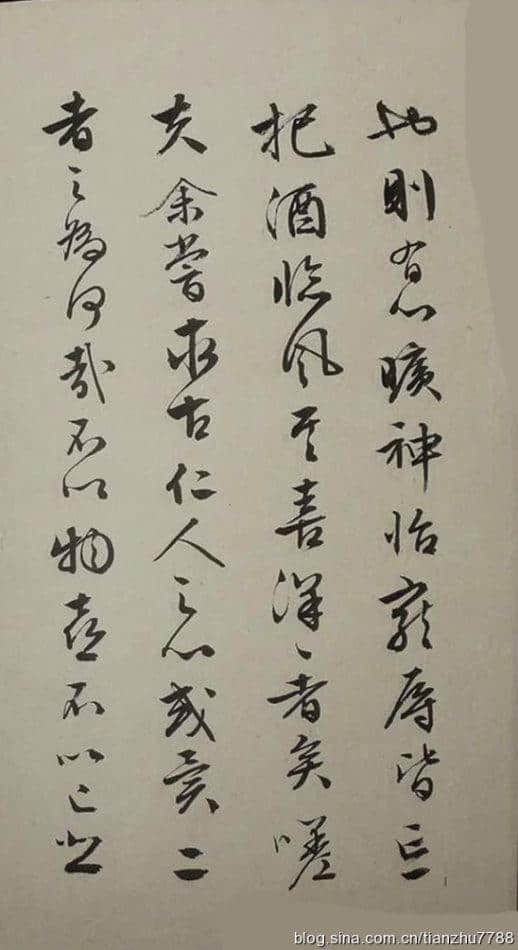 也則有心曠神怡寵辱皆忘
把酒臨風其喜洋々者矣嗟
夫余嘗求古仁人之心或異二
者之為何哉不以物喜不以己悲
blog.sina.com.cn/tianzhu7788